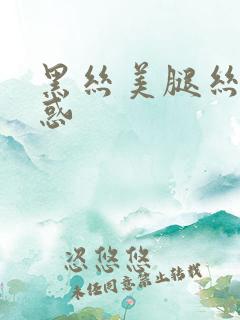 黑丝美腿丝
惑
忽悠悠
未经同意禁止转载